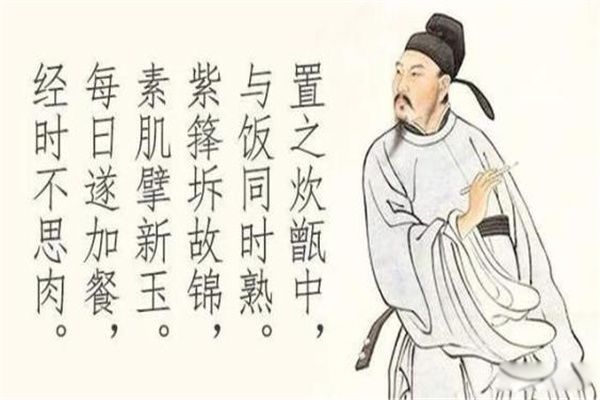 置之炊甑中，
与饭同时熟。
紫箨坼故锦，
素肌擘新玉。
每日遂加餐，
经时不思肉。